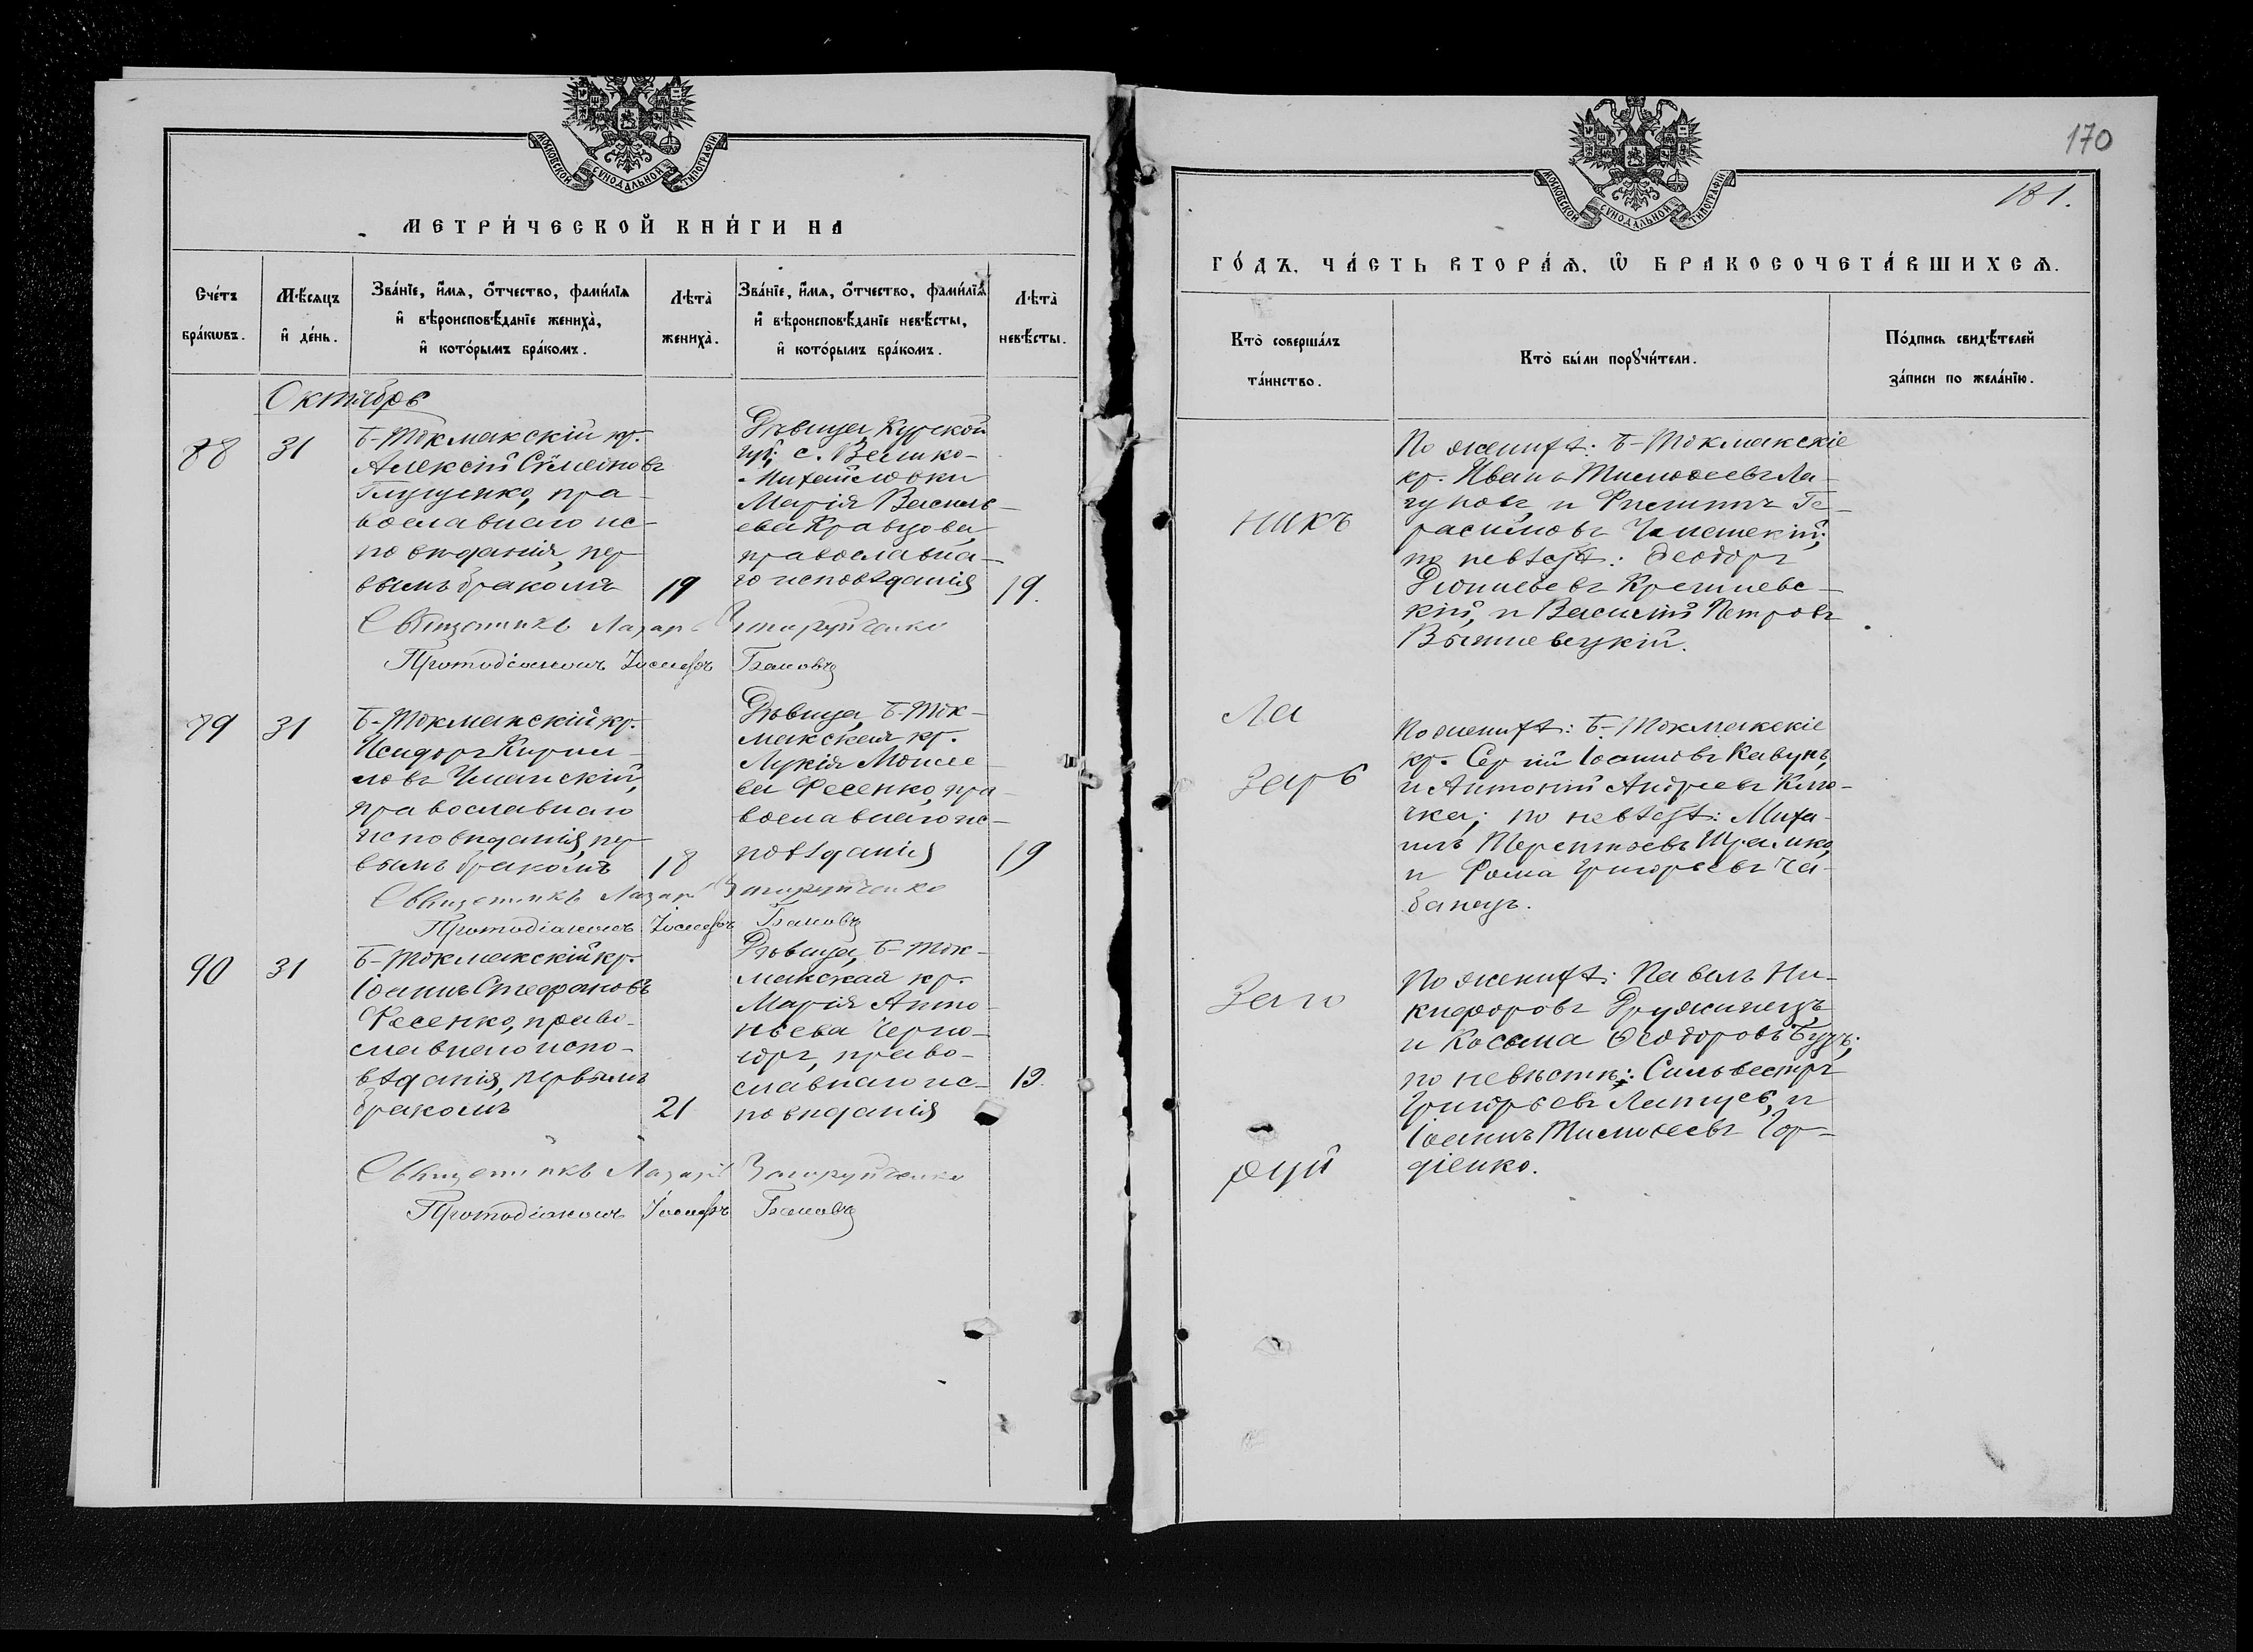 МОСКОВСКОЙ СѴНОДАЛЬНОЙ ТИПОГРАФІИ
МЕТРИ́ЧЕСКОЙ КНИ́ГИ НА
Сче́тъ бра́кѡвъ.
Мѣ́сяцъ и де́нь.
Зва́нїе, и́мя, о́тчество, фами́лїя и вѣроисповѣ́данїе жениха̀, и кото́рымъ бра́комъ.
Лѣта̀ жениха̀.
Зва́нїе, и́мя, о́тчество, фами́лїя и вѣроисповѣ́данїе невѣ́сты, и кото́рымъ бра́комъ.
Лѣта̀ невѣ́сты.
Октябрь
88
31
Б-Токмакскій кр.
Алексій Сѵмеоновъ
пра-
вославнаго ис-
повѣданія, пер-
вымъ бракомъ
19
Дѣвица Курской
губ; с. Велико-
-Михайловки
Марія Василь-
ева Кравцова,
православна-
го исповѣданія
19.
Священникъ Лазарь
Протодіаконъ Іосифъ Бановъ
89
31
Б-Токмакскій кр.
Исидоръ Кирил-
ловъ Уманскій,
православнаго
исповѣданія, пер-
вымъ бракомъ
18
Дѣвица, Б-Ток-
макская кр.
Лукія Моисе-
ва Фесенко, пра-
вославнаго ис-
повѣданія
19
Священникъ Лазарь
Протодіаконъ Іосифъ Бановъ
90
31
Б-Токмакскій кр.
Іоаннъ Стефановъ
Фесенко, право-
славнаго испо-
вѣданія, первымъ
бракомъ
21
Дѣвица, Б-Ток-
макская кр.
Марія Анто-
ньева
право-
славнаго ис-
повѣданія
19.
Священникъ Лазарь
Протодіаконъ Іосифъ Бановъ
170
181.
МОСКОВСКОЙ СѴНОДАЛЬНОЙ ТИПОГРАФІИ
ГО́ДЪ, ЧА́СТЬ ВТОРА́Ѧ, Ѡ БРАКОСОЧЕТА́ВШИХСѦ.
Кто̀ соверша́лъ та́инство.
Кто̀ бы́ли порꙋчи́тели.
По́дпись свидѣ́телей за́писи по жела́нїю.
никъ
По женихѣ: Б-Токмакскіе
кр. Иванъ Тимоѳеевъ Ла-
гуновъ, и Филиппъ Ге-
расимовъ
по невѣстѣ: Ѳеодоръ
кій, и Василій Петровъ
Вышневецкій.
Ла
зарь
По женихѣ: Б-Токмакскіе
кр. Сергій Іоанновъ Кавунъ,
и Антоній Андреевъ Клю-
чка; по невѣстѣ: Миха-
илъ Терентьевъ Шрамко,
и Ѳома Григорьевъ Ча-
банецъ.
Заго
По женихѣ: Павелъ Ни-
кифоровъ Дружинецъ,
и Косьма Ѳеодоровъ Бузъ;
по невѣстѣ: Сильвестръ
Григорьевъ Латушъ, и
Іоаннъ Тимоѳеевъ Гор-
діенко.
руй